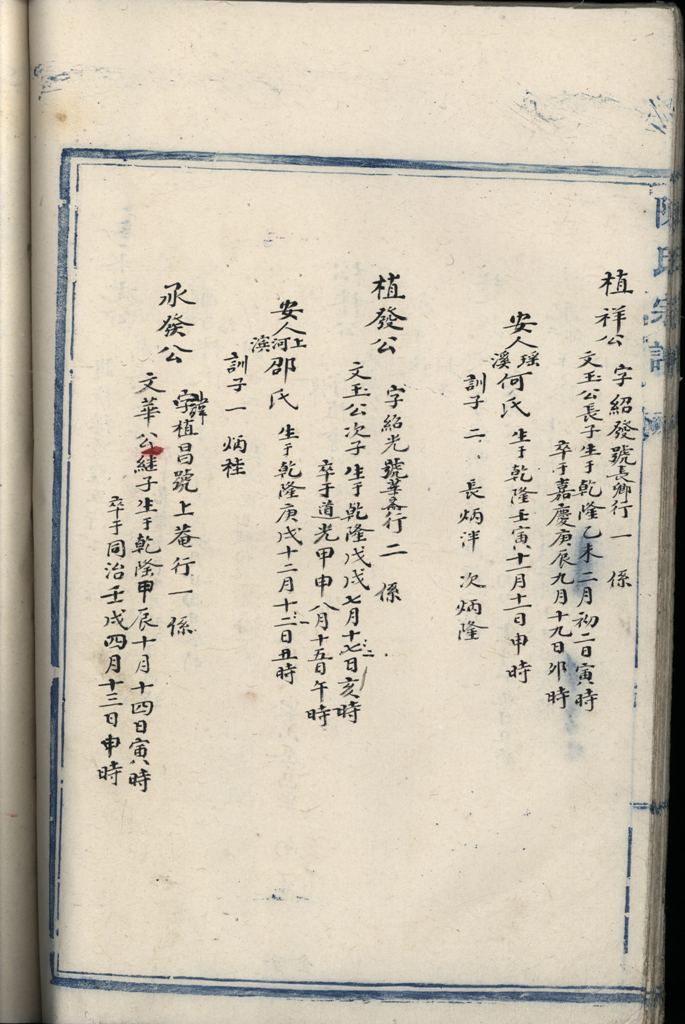 陳氏宗譜
植祥公 字紹發號長卿行一係
文玉公長子生于乾隆乙未二月初二日寅時
卒于嘉慶庚辰九月十九日卯時
安人瑶溪何氏 生于乾隆壬寅十一月十一日申時
訓子二 長炳泮 次炳隆
植發公 字紹光號華斋行二係
文玉公次子生于乾隆戊戌七月十七日亥時
卒于道光甲申八月十五日午時
安人上河濱邵氏 生于乾隆庚戌十二月十二日丑時
訓子一 炳桂
承發公 諱字植昌號上菴行一係
文華公継子生于乾隆甲辰十月十四日寅時
卒于同治壬戌四月十三日申時